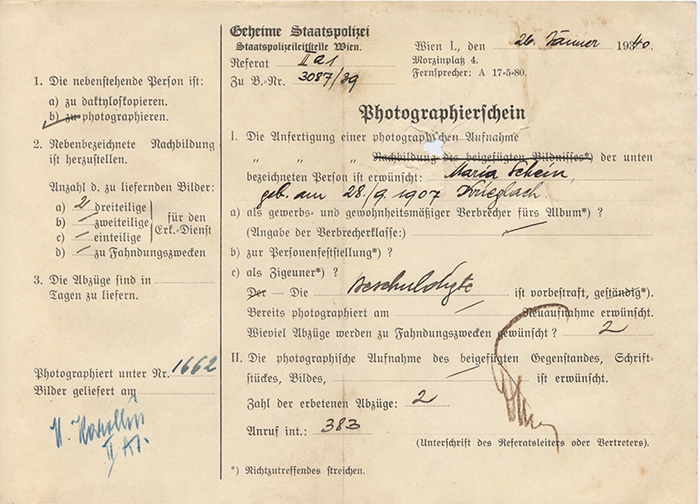 Geheime Staatspolizei
Staatspolizeileitstelle Wien.
Referat II a 1
Zu B.-Nr. 3087/39
Wien I., den 26. Jänner 1940.
Morzinplatz 4.
Fernsprecher: A 17-5-80.
1. Die nebenstehende Person ist:
a) zu daktyloskopieren.
b) zu photographieren.
2. Nebenbezeichnete Nachbildung
ist herzustellen.
Anzahl d. zu liefernden Bilder:
a) 2 dreiteilige
b) zweiteilige
c) einteilige
für den
Erk.-Dienst
d) zu Fahndungszwecken
3. Die Abzüge sind in
Tagen zu liefern.
Photographiert unter Nr. 1662
Bilder geliefert am
Photographierschein
I. Die Anfertigung einer photographischen Aufnahme
„ „ „ Nachbildung des beigefügten Bildnisses*) der unten
bezeichneten Person ist erwünscht: Maria Schein,
geb. am 28./9. 1907 Krieglach
a) als gewerbs- und gewohnheitsmäßiger Verbrecher fürs Album*) ?
(Angabe der Verbrecherklasse:)
b) zur Personenfeststellung*) ?
c) als Zigeuner*) ?
Der - Die Beschuldigte ist vorbestraft, geständig*).
Bereits photographiert am Neuaufnahme erwünscht.
Wieviel Abzüge werden zu Fahndungszwecken gewünscht ? 2
II. Die photographische Aufnahme des beigefügten Gegenstandes, Schrift-
stückes, Bildes, ist erwünscht.
Zahl der erbetenen Abzüge: 2
Anruf int.: 383
(Unterschrift des Referatsleiters oder Vertreters).
*) Nichtzutreffendes streichen.